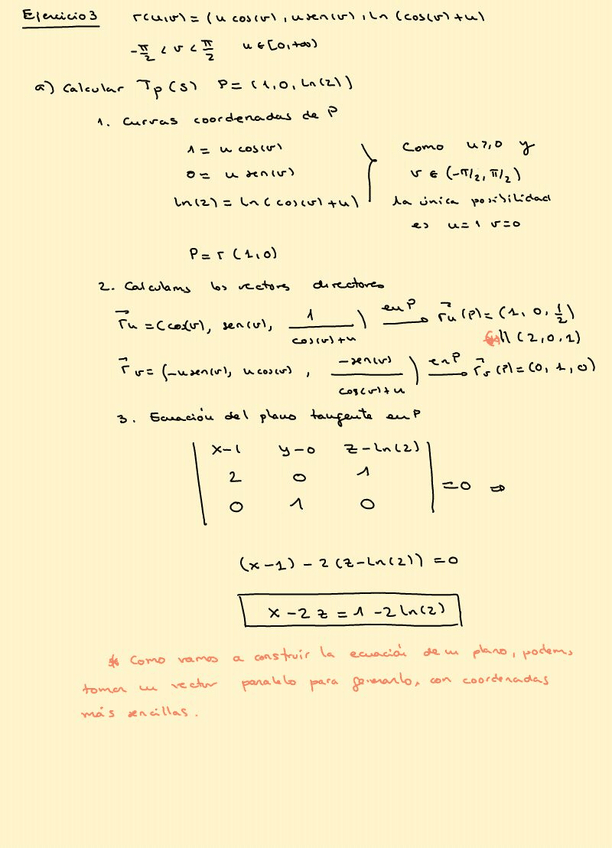 Ejercicio 3 r(u,v) = (u cos(v), u sen(v), ln (cos(v)+u)
-π/2 < v < π/2 u ∈ [0,+∞)
a) Calcular Tp(S) P = (1,0, ln(2))
1. Curvas coordenadas de P
1 = u cos(v)
0 = u sen(v)
ln(2) = ln(cos(v)+u)
Como u≥0 y
v ∈ (-π/2, π/2)
la única posibilidad
es u=1 v=0
P = r (1,0)
2. Calculamos los vectores directores
r⃗u = (cos(v), sen(v), 1/(cos(v)+u)) en P → r⃗u(P) = (1, 0, 1/2)
|| (2,0,1)
r⃗v = (-u sen(v), u cos(v), -sen(v)/(cos(v)+u)) en P → r⃗v(P) = (0, 1, 0)
3. Ecuación del plano tangente en P
| x-1 y-0 z-ln(2) |
| 2 0 1 | = 0 ⇒
| 0 1 0 |
(x-1) - 2(z-ln(2)) = 0
x - 2z = 1 - 2ln(2)
* Como vamos a construir la ecuación de un plano, podemos
tomar un vector paralelo para generarlo, con coordenadas
más sencillas.